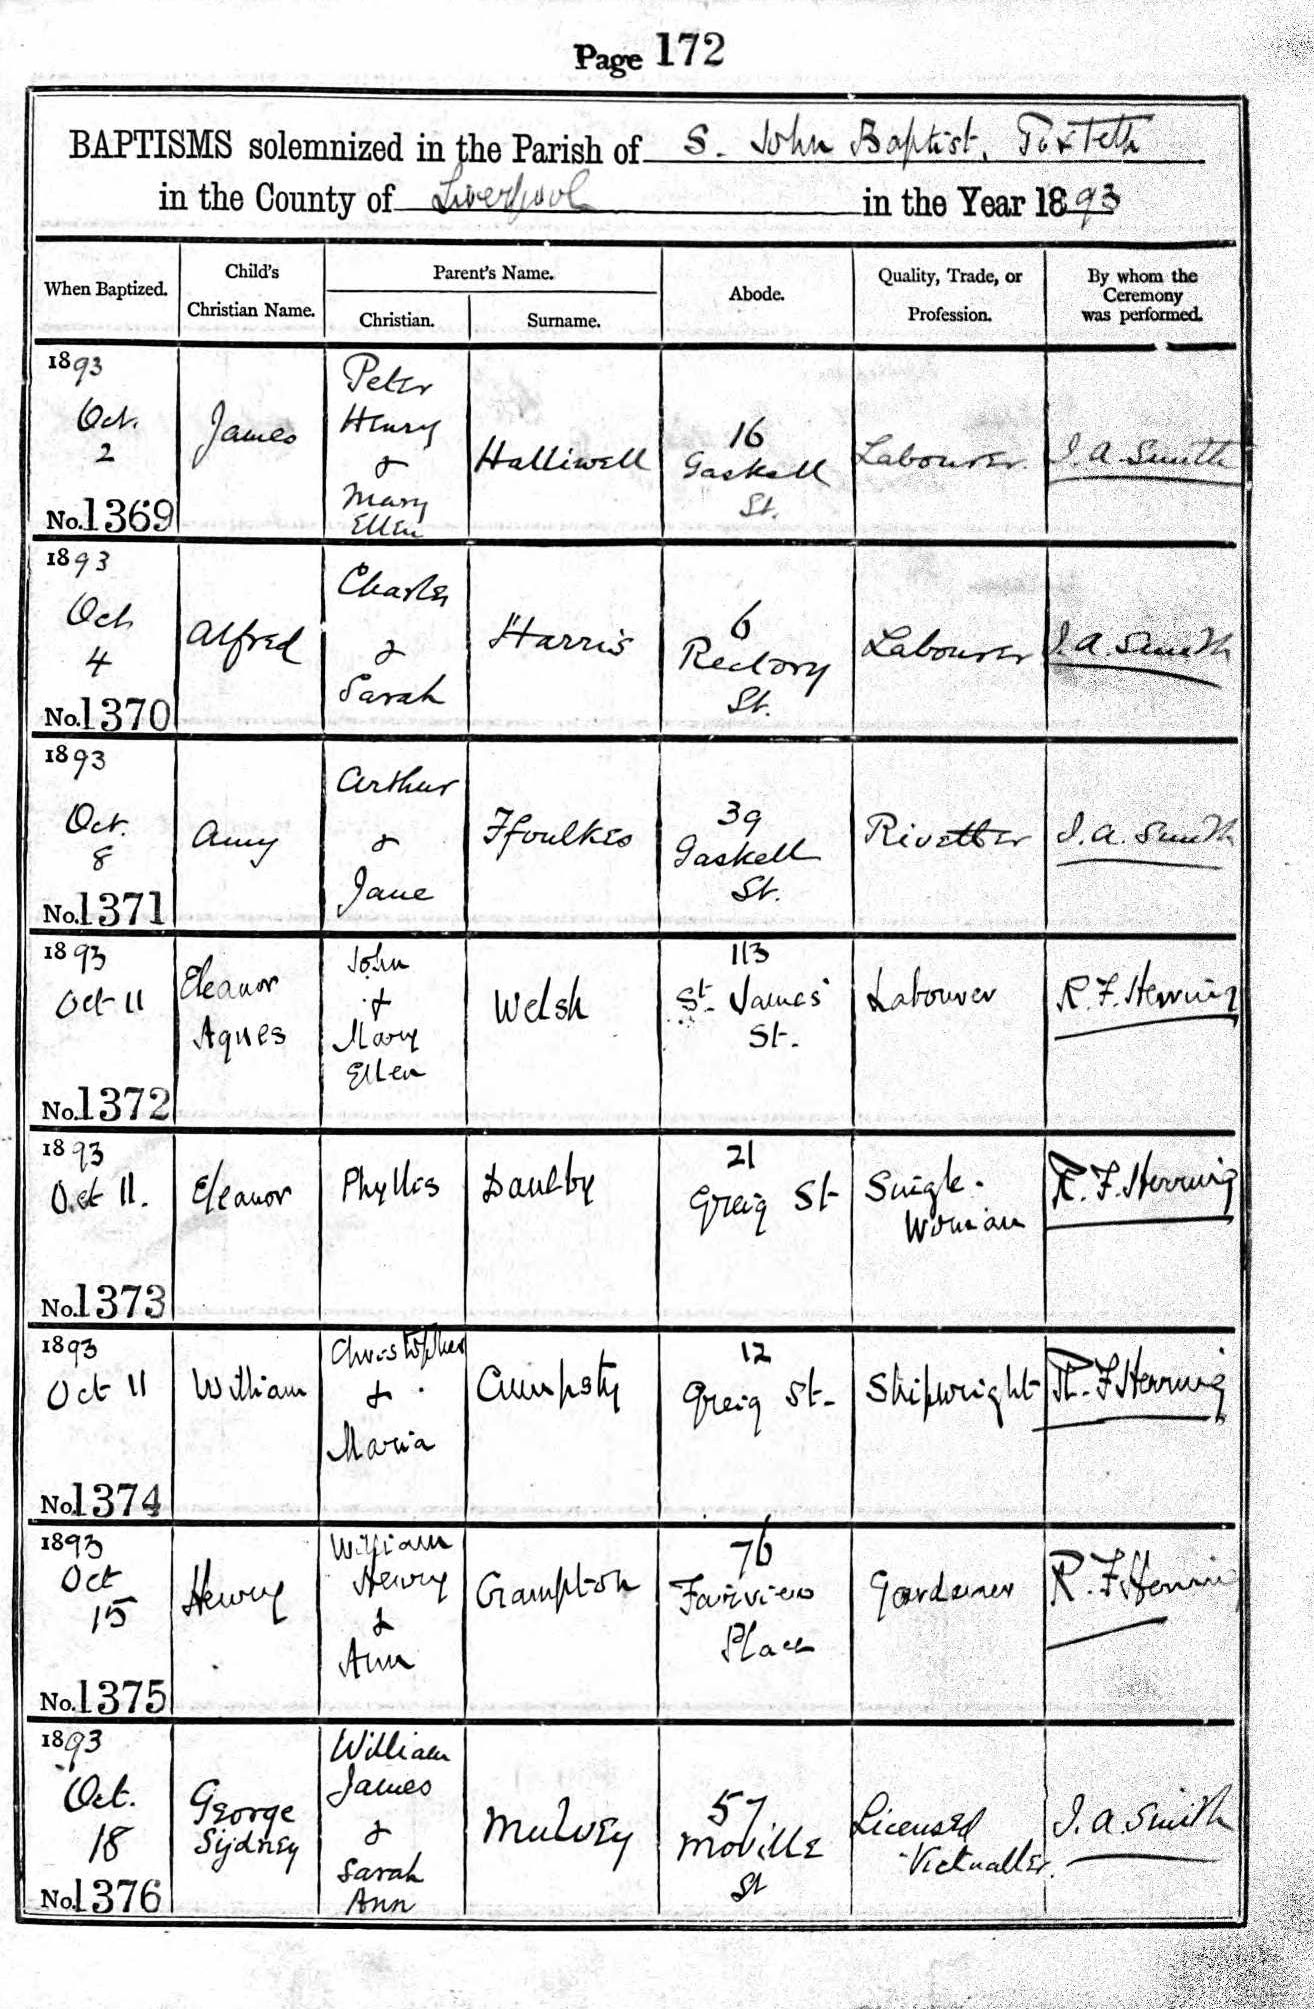 Page 172
BAPTISMS solemnized in the Parish of S. John Baptist, Toxteth
in the County of Liverpool in the Year 1893
When Baptized.
Child's
Christian Name.
Parent's Name.
Christian.
Surname.
Abode.
Quality, Trade, or
Profession.
By whom the
Ceremony
was performed.
1893
Oct.
2
No. 1369
James
Peter
Henry
&
Mary
Ellen
Halliwell
16
Gaskell
St.
Labourer.
J. A. Smith
1893
Oct.
4
No. 1370
Alfred
Charles
&
Sarah
Harris
6
Rectory
St.
Labourer
J. A. Smith
1893
Oct.
8
No. 1371
Amy
Arthur
&
Jane
Ffoulkes
39
Gaskell
St.
Rivetter
J. A. Smith
1893
Oct 11
No. 1372
Eleanor
Agnes
John
&
Mary
Ellen
Welsh
113
St. James'
St.
Labourer
R. F. Herring
1893
Oct 11.
No. 1373
Eleanor
Phyllis
Daulby
21
Greig St
Single
Woman
R. F. Herring
1893
Oct 11
No. 1374
William
Christopher
&
Maria
Cumpsty
12
Greig St.
Shipwright
R. F. Herring
1893
Oct
15
No. 1375
Henry
William
Henry
&
Ann
Crampton
76
Fairview
Place
Gardener
R. F. Herring
1893
Oct.
18
No. 1376
George
Sydney
William
James
&
Sarah
Ann
Mulvey
57
Moville
St
Licensed
Victualler.
J. A. Smith